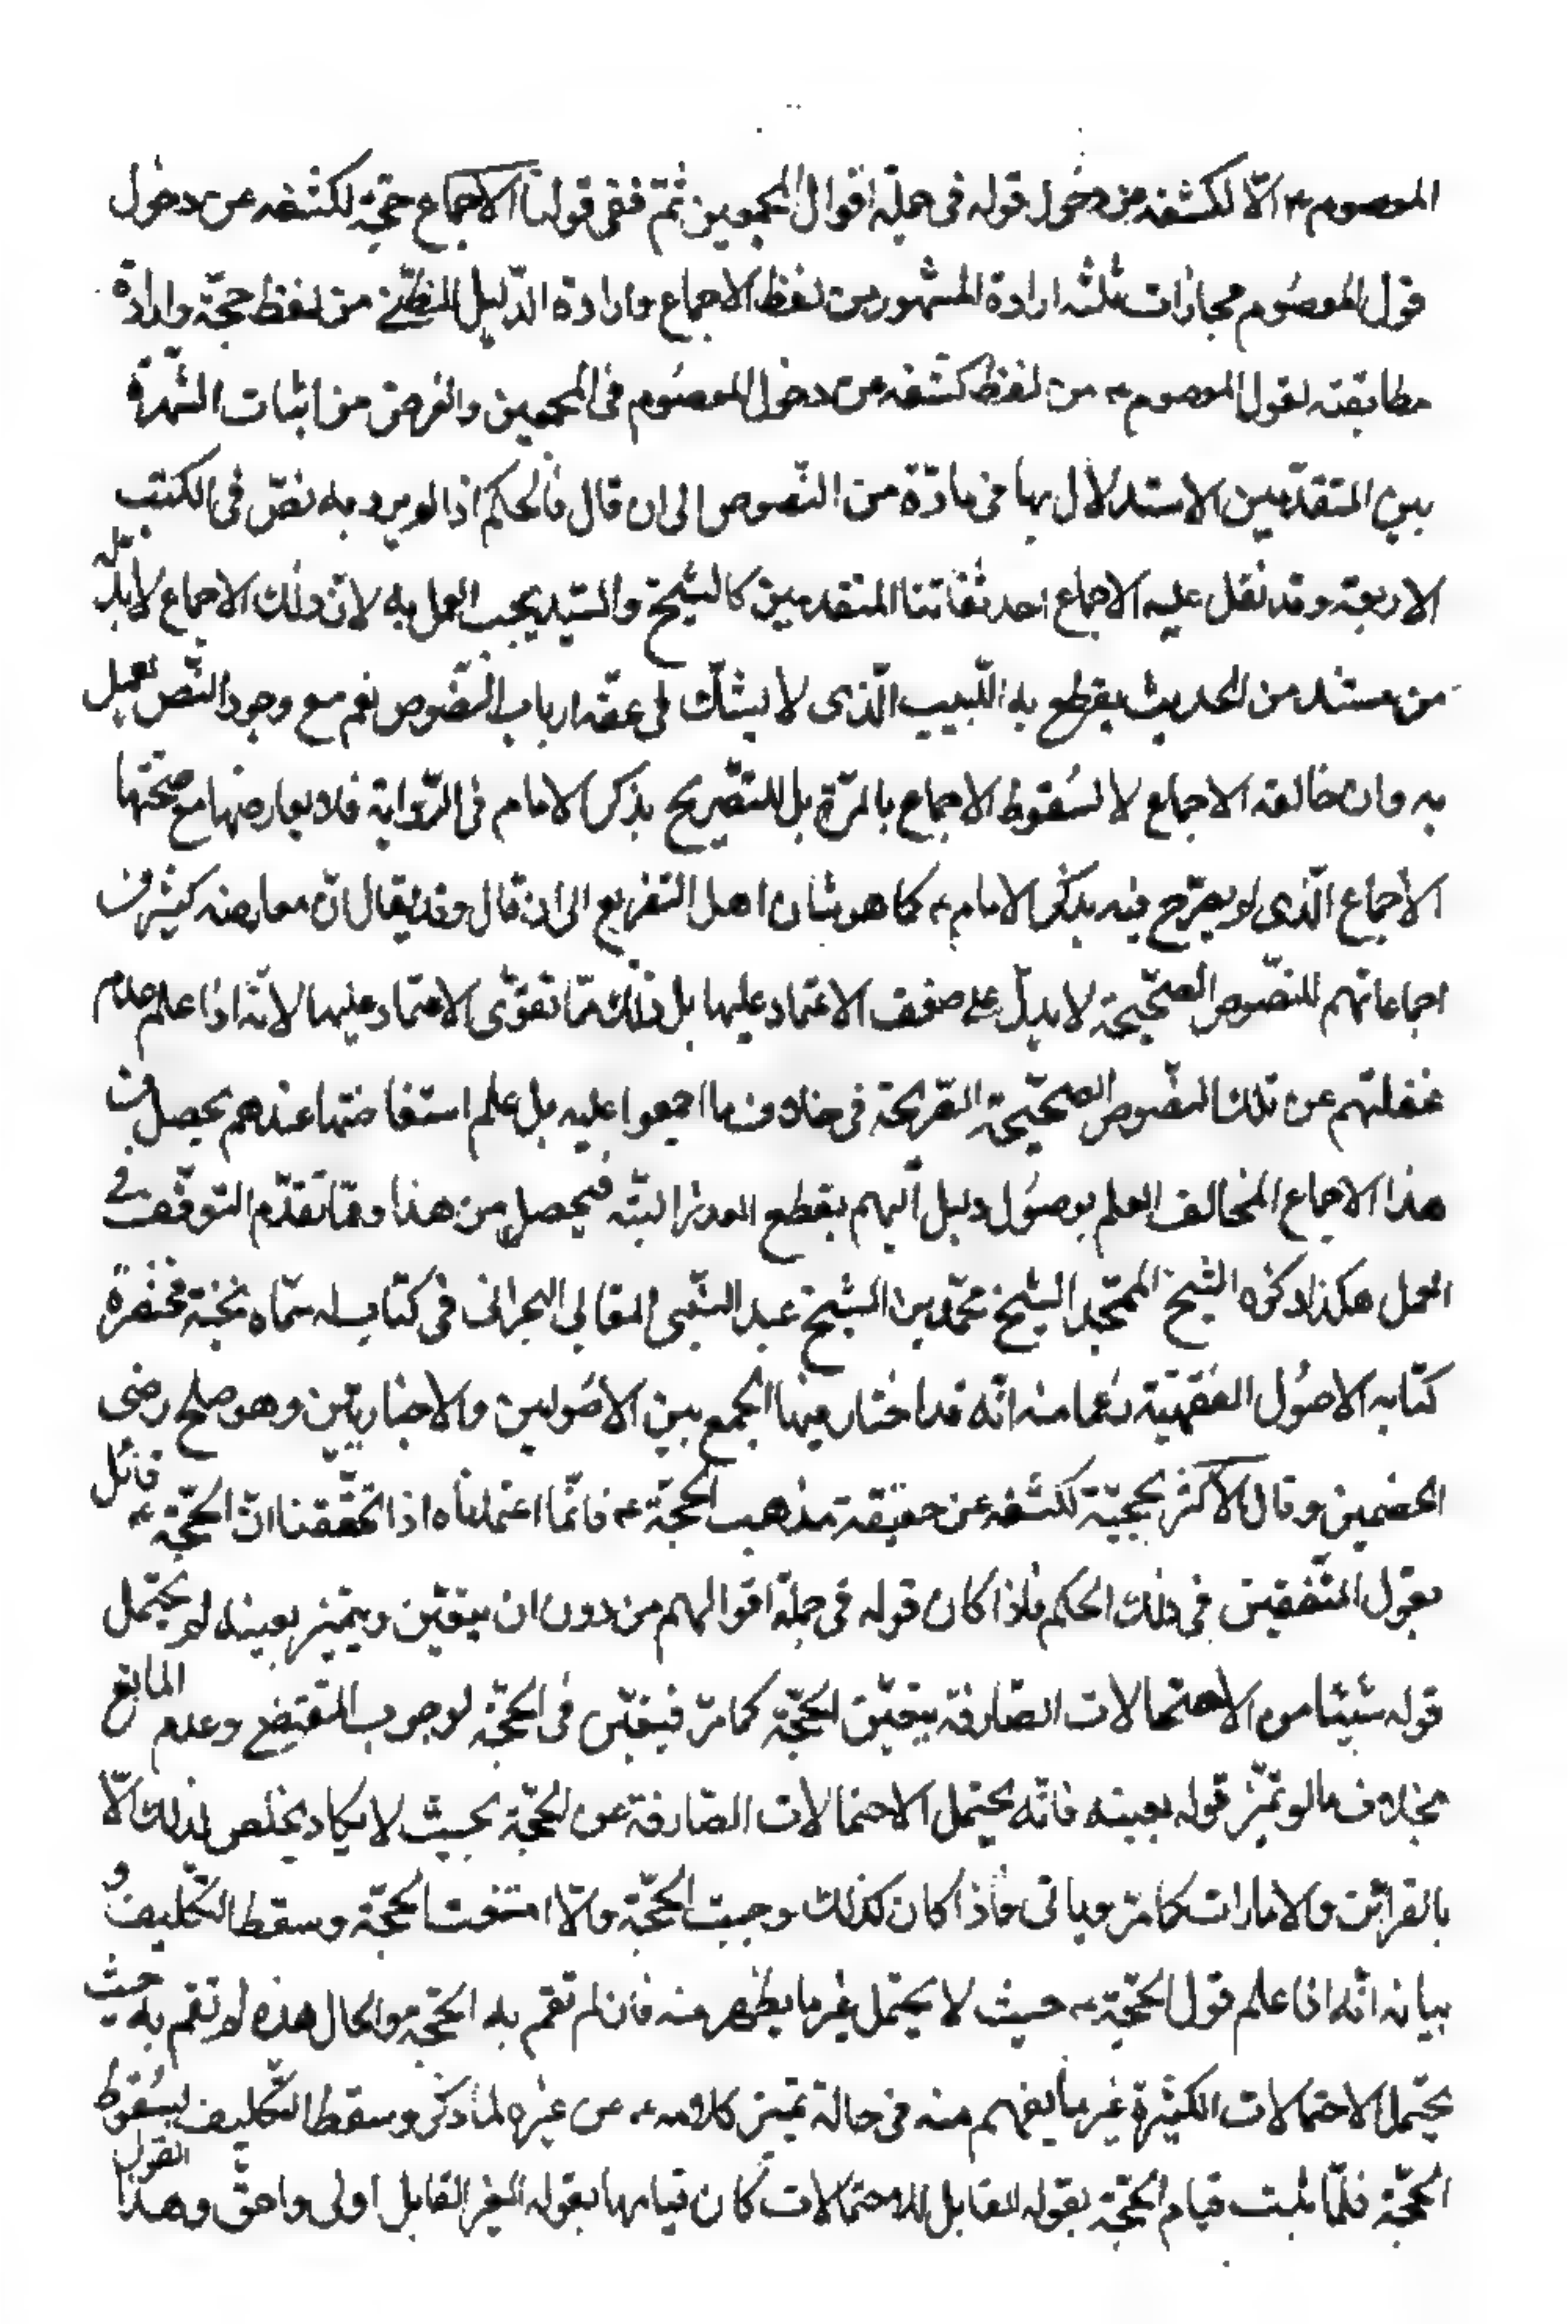 المعصوم ع الّا لكشفه عن دخول قوله فى جملة اقوال المجمعين ثمّ ففى قولنا الاجماع حجّة لكشفه عن دخول
قول المعصوم مجازات ثلثه ارادة المشهور من لفظ الاجماع وارادة الدّليل الظنّى من لفظ حجّة وارادة
مطابقته لقول المعصوم ع من لفظ كشفه عن دخول المعصوم فى المجمعين والغرض من اثبات الشهرة
بين المتقدّمين الاستدلال بها فى مادّة من النّصوص الى ان قال فالحكم اذا لم يرد به نصّ فى الكتب
الاربعة وقد نقل عليه الاجماع احد ثقاتنا المتقدمين كالشّيخ والسّيد يجب العمل به لانّ ذلك الاجماع لابدّ له
من مستند من الحديث يقطع به اللّبيب الّذى لا يشكّ فى عقّه ارباب النّصوص نعم مع وجود النّص يعمل
به وان خالفه الاجماع لا لسُقوط الاجماع بالمرّة بل للتّصريح بذكر الامام فى الرّواية فلا يعارضها مع صحّتها
الاجماع الّذى لم يصرّح فيه بذكر الامام ع كما هو شان اهل التفريع الى ان قال وقد يقال انّ معارضه كثير من
اجماعاتهم للنّصوص الصّحيحة لا يدلّ على ضعف الاعتماد عليها بل ذلك ممّا تقوّى الاعتماد عليها لانّه اذا علم عدم
غفلتهم عن تلك النّصوص الصّحيحة الصّريحة فى خلاف ما اجمعوا عليه بل علم استفاضتها عندهم يحصل من
هذا الاجماع المخالف العلم بوصُول دليل اليهم يقطع العذر البتّه فيحصل من هذا وممّا تقدّم التوقّف فى
العمل هكذا ذكره الشّيخ الممجّد الشّيخ محمّد بن الشّيخ عبد النّبى المقابى البحرانى فى كتاب له سمّاه نخبة مختصرة
كتابه الاصُول الفقهيّة زعما منه انّه قد اختار فيها الجمع بين الاصُوليين والاخباريّين وهو صلح رضى
الخصمين وقال الاكثر بحجيّة لكشفه عن حقيقة مذهب الحجّة ع فانّما اعتمدناه اذا تحقّقنا انّ الحجّة ع قائل
بقول المتّفقين فى ذلك الحكم فاذا كان قوله فى جملة اقوالهم من دون ان يتعيّن ويتميّز بعينه لم يحتمل
قوله شيئا من الاحتمالات الصّارفة بيقين الحجّة كما مرّ فيتعيّن فى الحجّة لوجوب المقتضى وعدم المانع
بخلاف ما لو تميّز قوله بعينه فانّه يحتمل الاحتمالات الصّارفة عن الحجّة بحيث لا يكاد يخلص لذلك الّا
بالقرائن والامارات كما مرّ وياتى فاذا كان كذلك وجبت الحجّة والّا انتفت الحجّة وسقط التّكليف و
بيانه انّه اذا علم قول الحجّة ع حيث لا يحتمل غير ما يظهر منه فان لم تقم به الحجّة والحال هذه لم تقم به حيث
يحتمل الاحتمالات الكثيرة غير ما يفهم منه فى حالة تميّز كلامه ع عن غيره لما ذكر وسقط التّكليف لسُقوط
الحجّة فلمّا ثبت قيام الحجّة بقوله القابل للاحتمالات كان قيامها بقوله الغير القابل اولى واحقّ وهذا القول